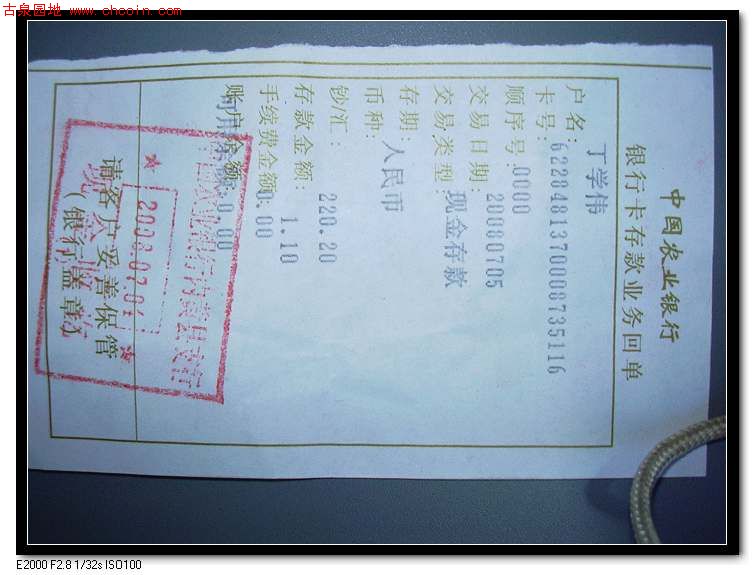 古泉园地 www.chcoin.com
中国农业银行
银行卡存款业务回单
户名: 丁学伟
卡号:6228481370008735116
顺序号:0000
交易日期: 20080705
交易类型: 现金存款
存期:
币种: 人民币
钞/汇:
存款金额: 220.20
手续费金额: 1.10
账户余额: 0.00
0.00
请客户妥善保管
(银行盖章)
E2000 F2.8 1/32s ISO100